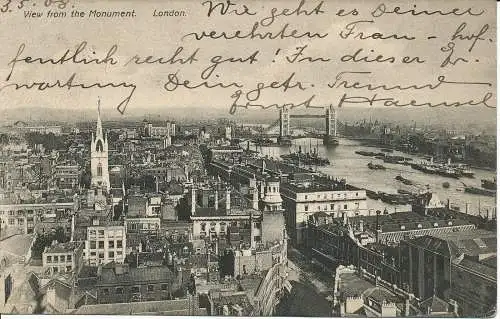 3.5.03.
View from the Monument. London.
Wie geht es Deiner
verehrten Frau - hof-
fentlich recht gut! In dieser Er-
wartung Dein getr. Freund
Ernst Haensel